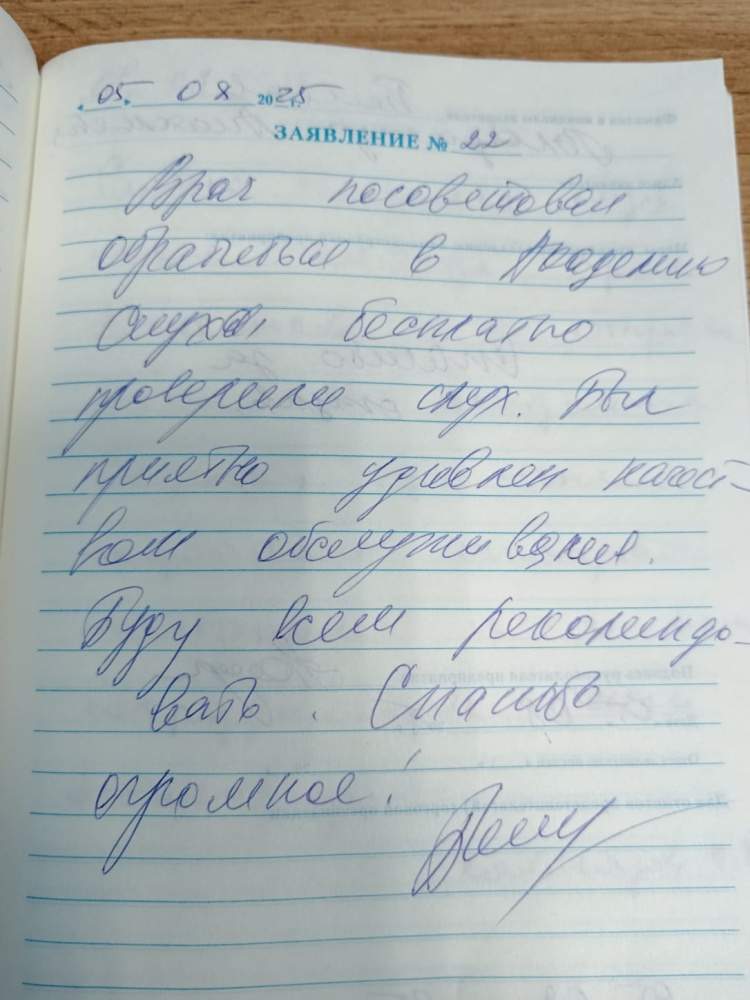 « 05 » 08 2025 г.
ЗАЯВЛЕНИЕ № 22
Врач посоветовал
обратиться в Академию
Слуха, бесплатно
проверили слух. Был
приятно удивлен качест-
вом обслуживания.
Буду всем рекомендо-
вать. Спасибо
огромное!